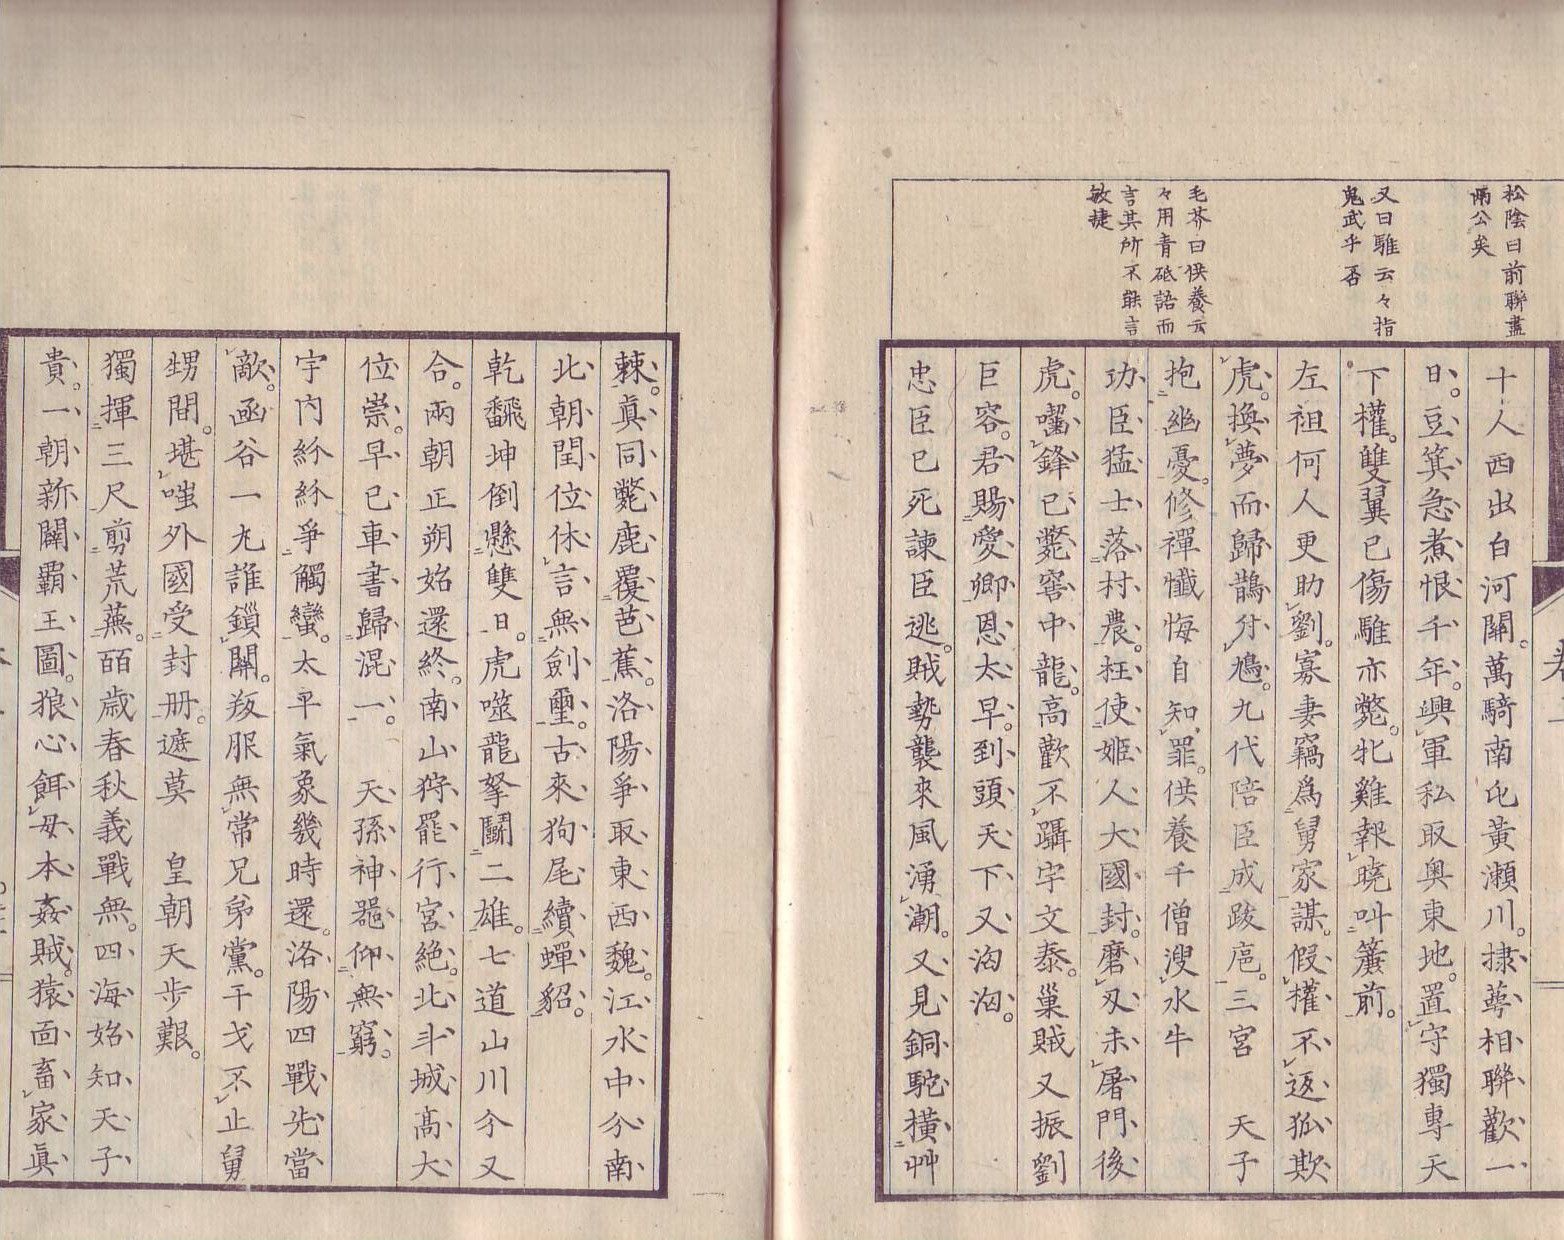 松陰曰前聯盡
兩公矣
又曰騅云々指
鬼武乎否
毛芥曰供養云
々用青砥語而
言其所不能言
敏捷
十人西出白河關。萬騎南屯黃瀨川。棣萼相聯歡一
日。豆箕急煮恨千年。興軍私取奥東地。置守獨專天
下權。雙翼已傷騅亦斃。牝雞報曉叫簾前。
左袒何人更助劉。寡妻竊爲舅家謀。假權不返狐欺
虎。換夢而歸鵲付鳩。九代陪臣成跋扈。三宮　天子
抱幽憂。修禪懺悔自知罪。供養千僧溲水牛
功臣猛士落村農。枉使姬人大國封。磨刄未屠門後
虎。囓鋒已斃窖中龍。高歡不躡宇文泰。巢賊又振劉
巨容。君賜愛卿恩太早。到頭天下又洶洶。
忠臣已死諫臣逃。賊勢襲來風湧潮。又見銅駝橫艸
棘。真同斃鹿覆芭蕉。洛陽爭取東西魏。江水中分南
北朝。閏位休言無劍璽。古來狗尾續蟬貂。
乾飜坤倒懸雙日。虎噬龍拏鬪二雄。七道山川今又
合。兩朝正朔始還終。南山狩罷行宮絶。北斗城高大
位崇。早已車書歸混一。　天孫神器仰無窮。
宇内紛紛爭觸蠻。太平氣象幾時還。洛陽四戰先當
敵。函谷一丸誰鎖關。叛服無常兄弟黨。干戈不止舅
甥間。堪嗤外國受封册。遮莫　皇朝天步艱。
獨揮三尺剪荒蕪。百歲春秋義戰無。四海始知天子
貴。一朝新闢霸王圖。狼心餌母本姦賊。猿面畜家眞